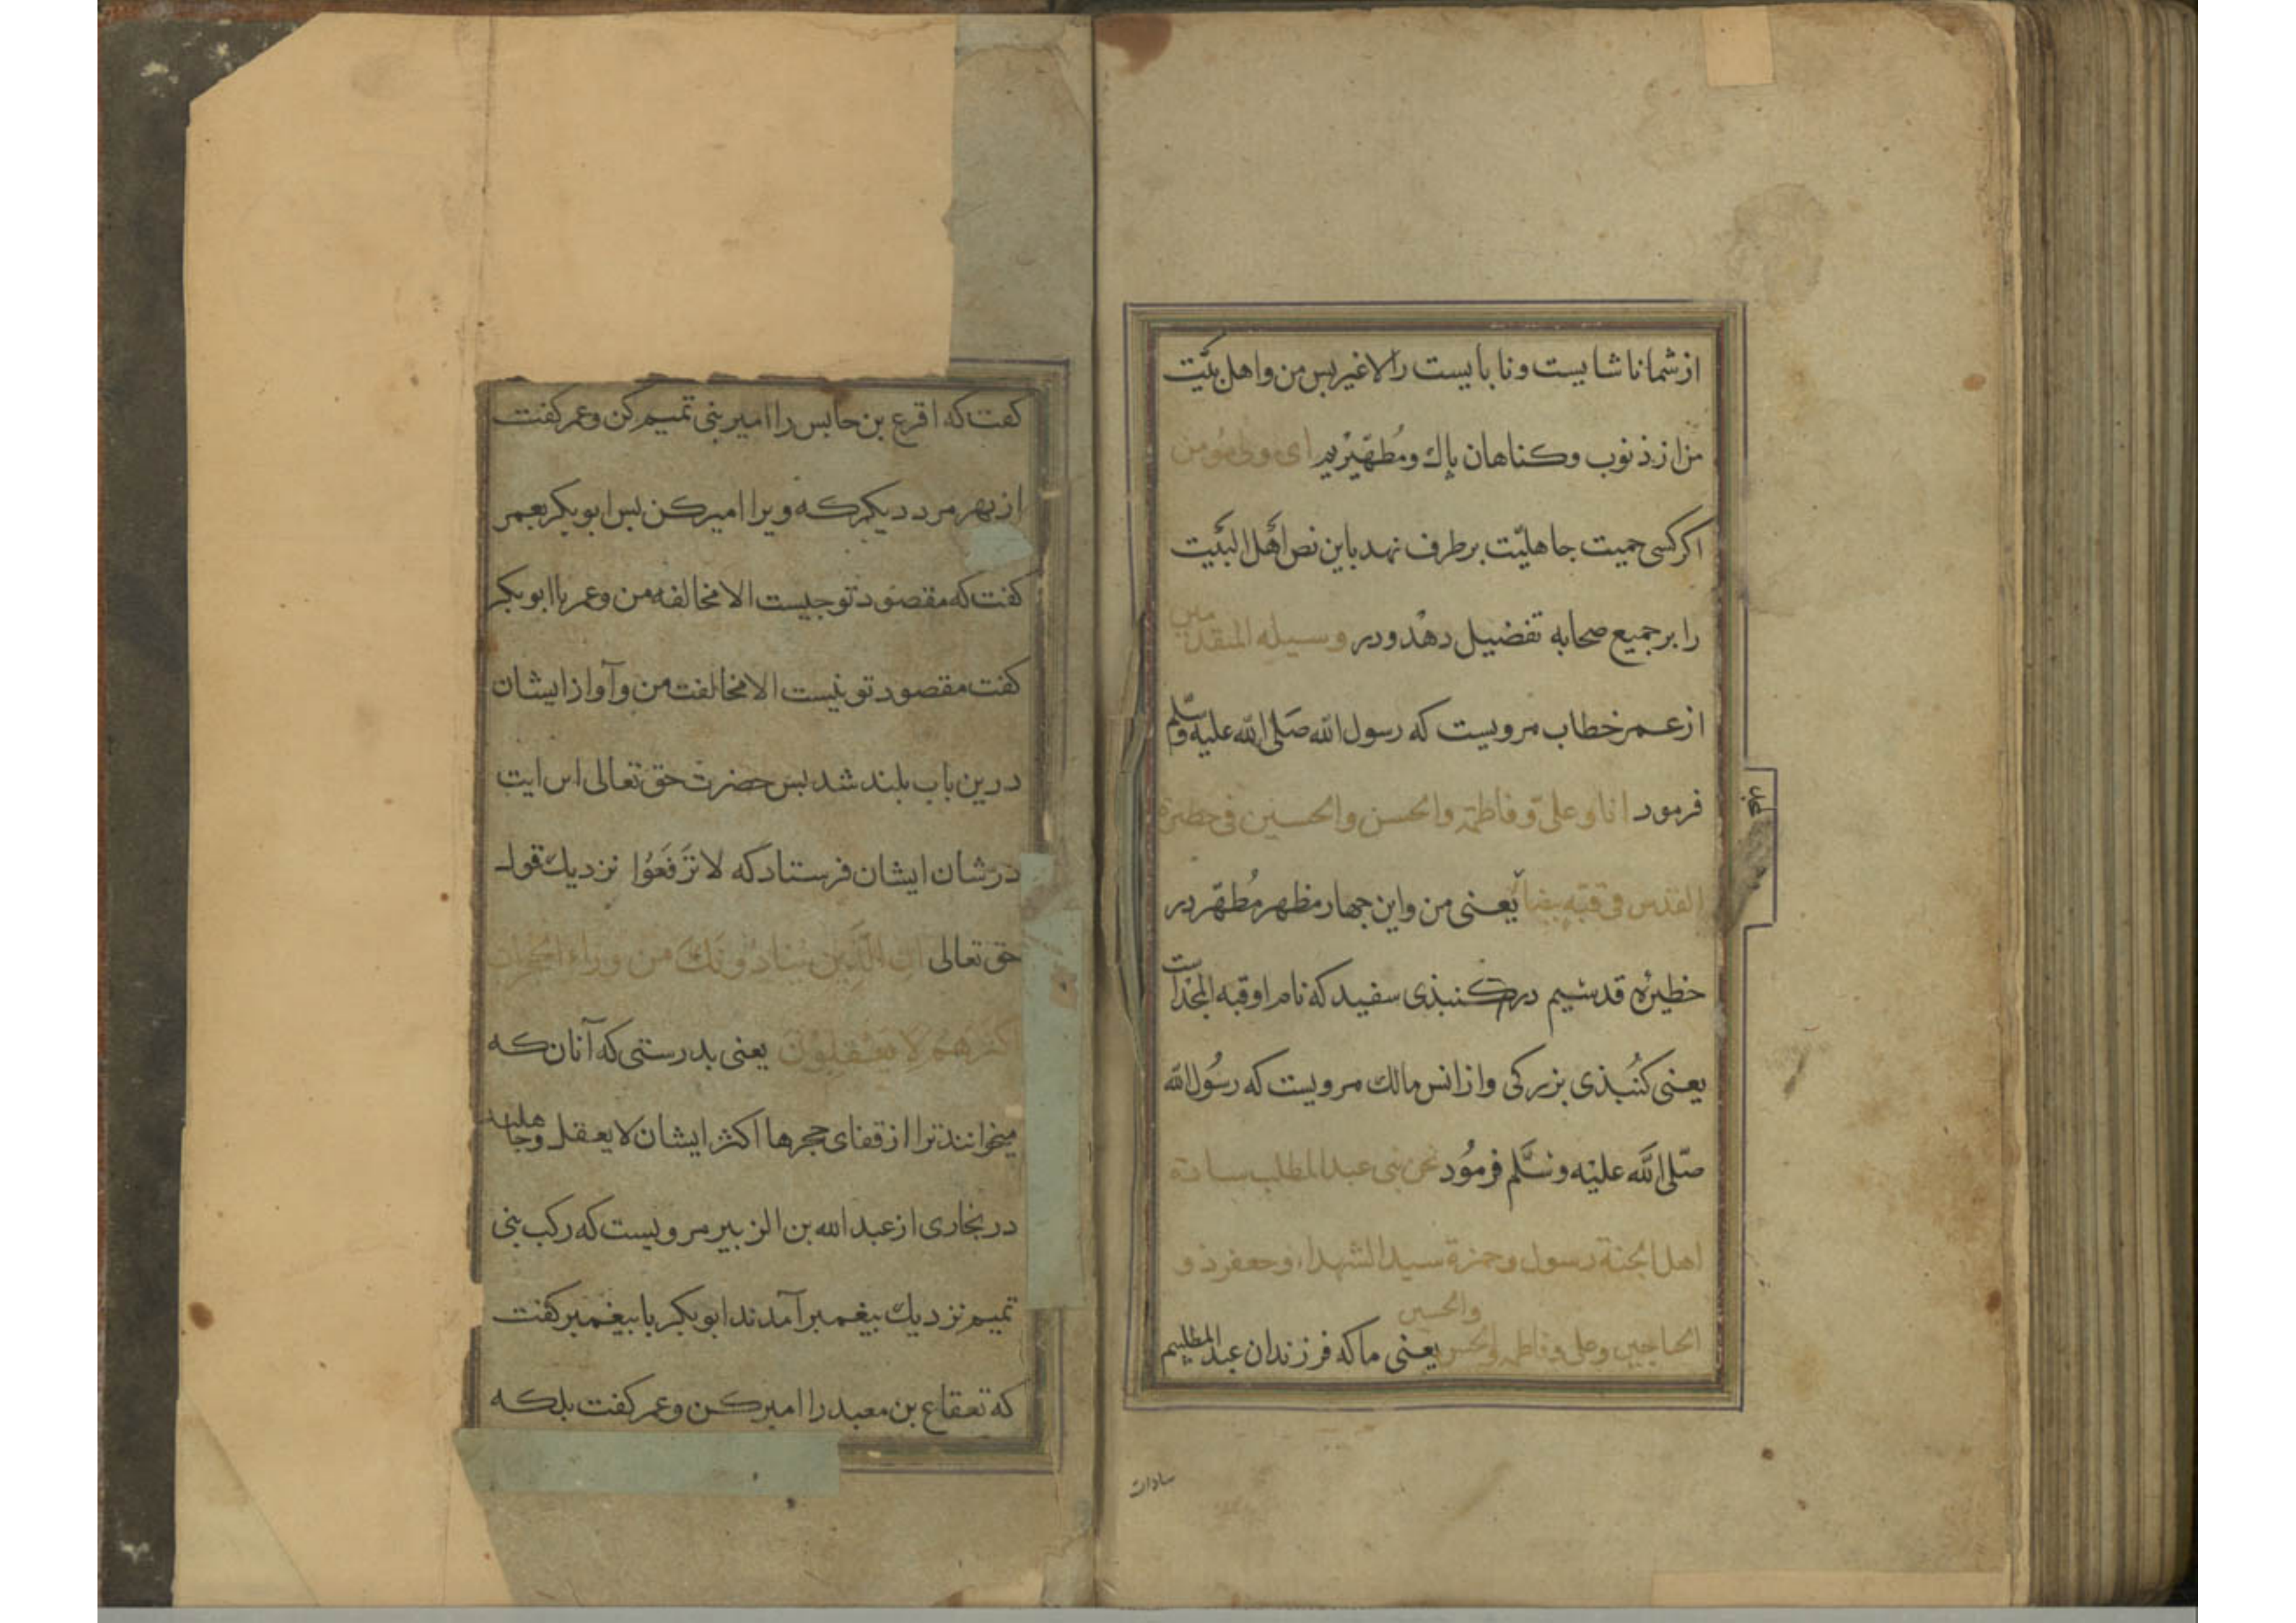 از شما ناشایست و نابایست را لاغیر بس من و اهل بیت
من از ذنوب و کناهان باك و مُطهّریم ای ولی مؤمن
اکر کسی حمیت جاهلیّت بر طرف نهد باین نص اَهل البَیت
را بر جمیع صحابه تفضیل دهد و در وسیله المتقدمین
از عمر خطاب مرویست که رسول الله صَلی الله علیه وسلّم
فرمود انا و علیّ و فاطمة والحسن والحسین فی حظیرة
القدس فی قبّه بیضا یعنی من و این جهار مظهر مُطهّر در
حظیرۀ قدسیم در کنبذی سفید که نام او قبه المجد است
یعنی کنُبذی بزرکی و از انس مالك مرویست که رسُول الله
صَلی الله علیه وسَلّم فرمُود نحن بنی عبد المطلب سادة
اهل الجنة رسول و حمزة سید الشهداء و جعفر ذو
الجناحین و علی و فاطمه والحسن والحسین یعنی ما که فرزندان عبد المطلبیم
سادات
کفت که اقرع بن حابس را امیر بنی تمیم کن و عمر کفت
از بهر مرد دیکر که ویرا امیر کن بس ابوبکر بعمر
کفت که مقصود تو جیست الا مخالفه من و عمر با ابوبکر
کفت مقصود تو نیست الا مخالفت من و آواز ایشان
درین باب بلند شد بس حضرت حق تعالی این ایت
در شان ایشان فرستاد که لا تَرفَعُوا نزدیك قول
حق تعالی ان الَّذین ینادُونَكَ من وراء الحُجرات
اکثرهم لا یعقلون یعنی بدرستی که آنان که
میخوانند ترا از قفای حجرها اکثر ایشان لا یعقل و جاهلند
در بخاری از عبد الله بن الزبیر مرویست که رکب بنی
تمیم نزدیك بیغمبر آمدند ابوبکر با بیغمبر کفت
که تعقاع بن معبد را امیر کن و عمر کفت بلکه